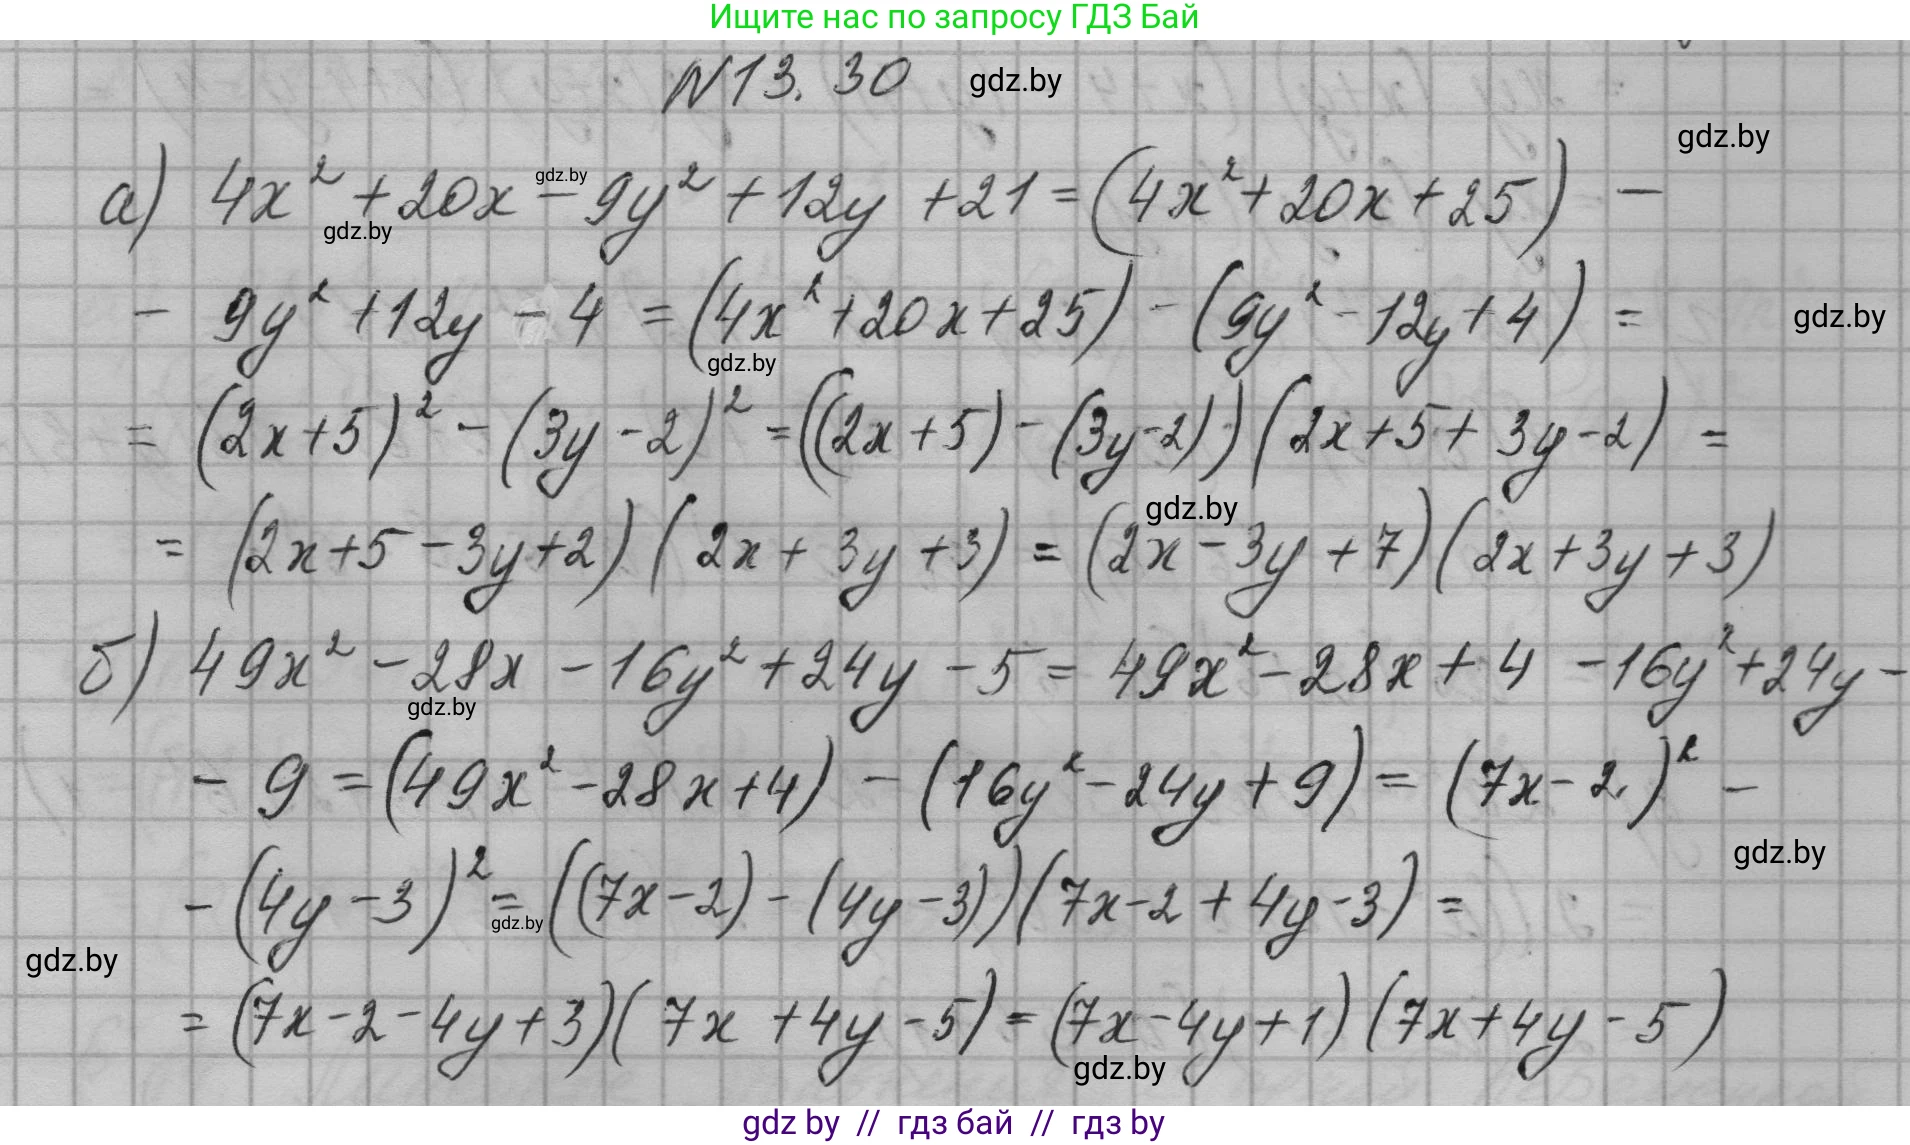 Ищите нас по запросу ГДЗ Бай
N13.30 gdz.by
gdz.by
а) 4x² + 20x - 9y² + 12y + 21 = (4x² + 20x + 25) -
gdz.by
gdz.by
- 9y² + 12y - 4 = (4x² + 20x + 25) - (9y² - 12y + 4) =
gdz.by
gdz.by
= (2x + 5)² - (3y - 2)² = ((2x + 5) - (3y - 2)) (2x + 5 + 3y - 2) =
gdz.by
= (2x + 5 - 3y + 2) (2x + 3y + 3) = (2x - 3y + 7) (2x + 3y + 3)
б) 49x² - 28x - 16y² + 24y - 5 = 49x² - 28x + 4 - 16y² + 24y -
gdz.by
- 9 = (49x² - 28x + 4) - (16y² - 24y + 9) = (7x - 2)² -
gdz.by
- (4y - 3)² = ((7x - 2) - (4y - 3)) (7x - 2 + 4y - 3) =
gdz.by
gdz.by
= (7x - 2 - 4y + 3) (7x + 4y - 5) = (7x - 4y + 1) (7x + 4y - 5)
gdz.by
gdz by // гдз бай // гдз by